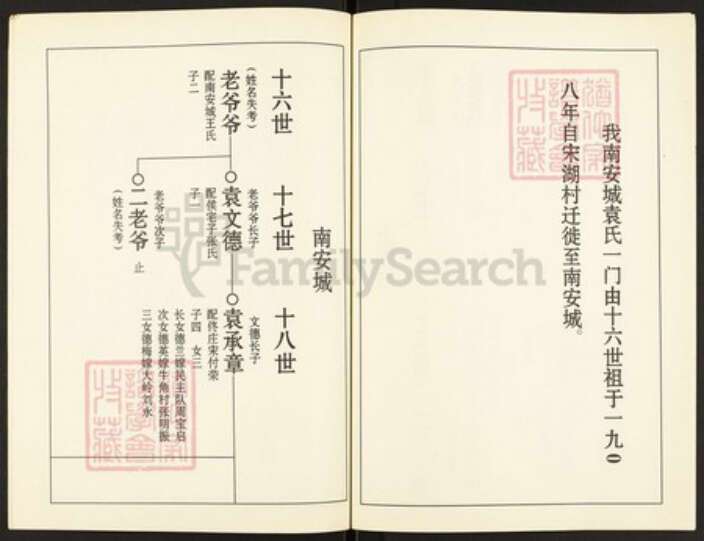 我南安城袁氏一门由十六世祖于一九0
八年自宋湖村迁徙至南安城。
南安城
十六世
(姓名失考)
老爷爷
配南安城王氏
子二
十七世
老爷爷长子
袁文德
配侯宅子张氏
子一
老爷爷次子
二老爷 止
(姓名失考)
十八世
文德长子
袁承章
配佟庄宋付荣
子四 女三
长女德兰嫁民主队周宝启
次女德英嫁牛角村张明振
三女德梅嫁大岭刘永
FamilySearch